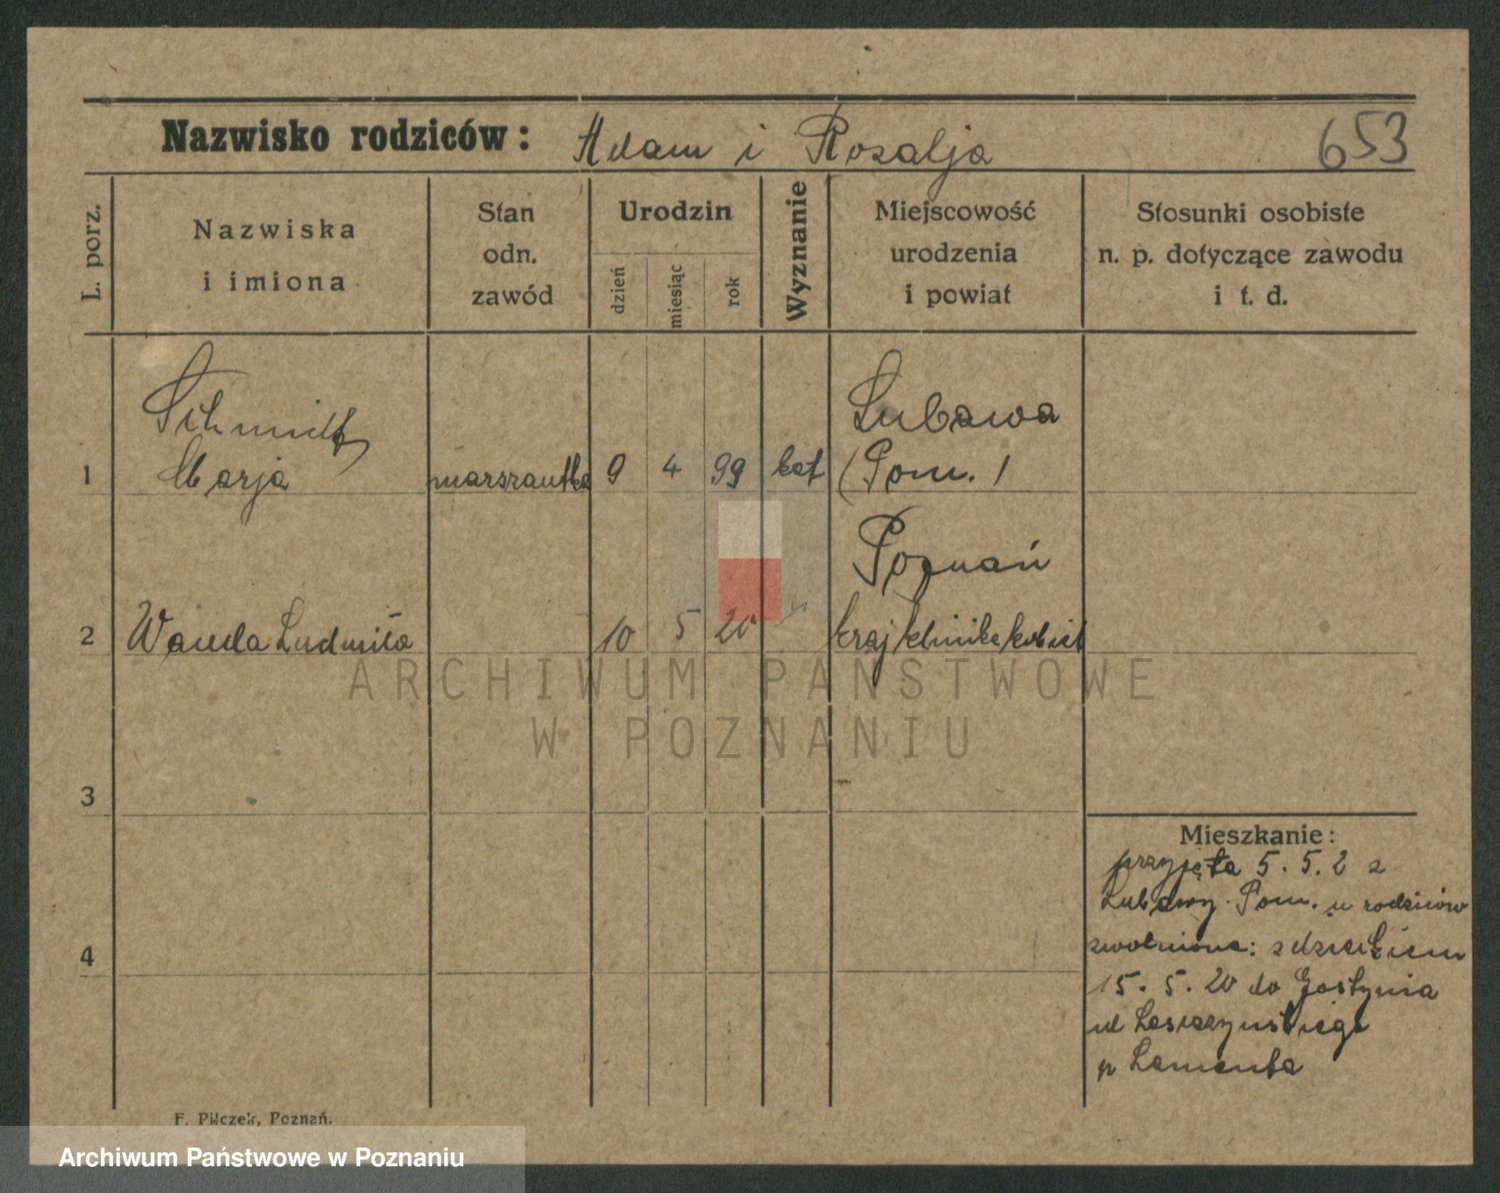 Nazwisko rodziców: Adam i Rozalja 653
L. porz.
Nazwiska
i imiona
Stan
odn.
zawód
Urodzin
dzień
miesiąc
rok
Wyznanie
Miejscowość
urodzenia
i powiat
Stosunki osobiste
n. p. dotyczące zawodu
i t. d.
Schmidt
Marja
1
9 4 99 kat
Lubawa
(Pom.)
Poznań
2 Wanda Ludmiła
10 5 20 "
kraj klinika kobiet
3
4
Mieszkanie:
przyjęta 5. 5. 2 z
Lubawy Pom. u rodziców
zwolniona: z dzieckiem
15. 5. 20 do Gostynia
ul Leszczyńskiego
p Lamenta
F. Pilczek, Poznań.
ARCHIWUM PAŃSTWOWE
W POZNANIU
Archiwum Państwowe w Poznaniu